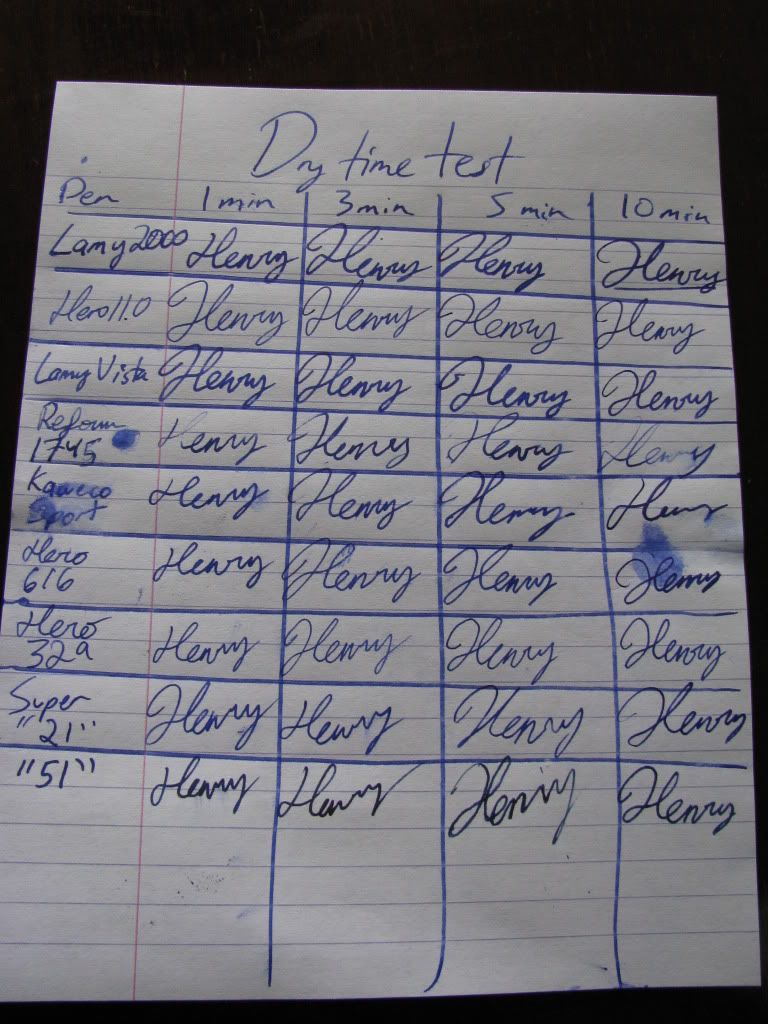 Dry time test
Pen 1 min 3 min 5 min 10 min
Lamy 2000 Henry Henry Henry Henry
Hero 11.0 Henry Henry Henry Henry
Lamy Vista Henry Henry Henry Henry
Reform
1745 Henry Henry Henry Henry
Kaweco
Sport Henry Henry Henry Henry
Hero
616 Henry Henry Henry Henry
Hero
329 Henry Henry Henry Henry
Super
"21" Henry Henry Henry Henry
"51" Henry Henry Henry Henry